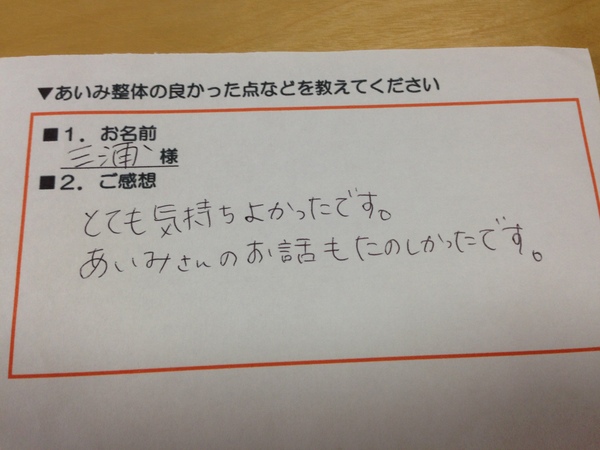 ▼あいみ整体の良かった点などを教えてください
■1．お名前
三浦 様
■2．ご感想
とても気持ちよかったです。
あいみさんのお話もたのしかったです。